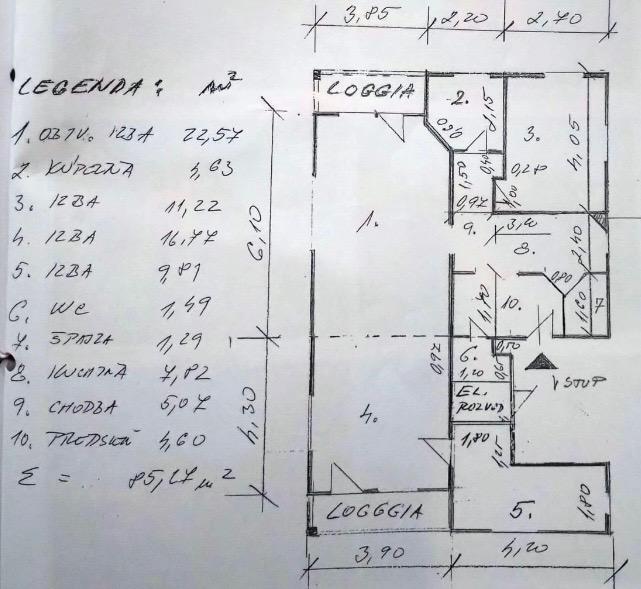 3,85 2,20 2,70
LEGENDA: m²
1. OBÝV. IZBA 22,57
2. KÚPEĽŇA 4,63
3. IZBA 11,22
4. IZBA 16,77
5. IZBA 9,81
6. WC 1,49
7. ŠPAJZA 1,29
8. KUCHYŇA 7,82
9. CHODBA 5,07
10. PREDSIEŇ 4,60
Σ = 85,27 m²
LOGGIA
2.
2,15
0,60
3.
4,05
1,50
0,40
0,28
1,00
0,97
6,10
1.
9.
3,40
8.
2,40
0,80
1,70
10.
1,60
7
0,97
6.
1,20
0,50
0,65
VSTUP
EL.
ROZVOD
4,30
4.
1,80
1,25
LOGGGIA
5.
1,80
3,90 4,20